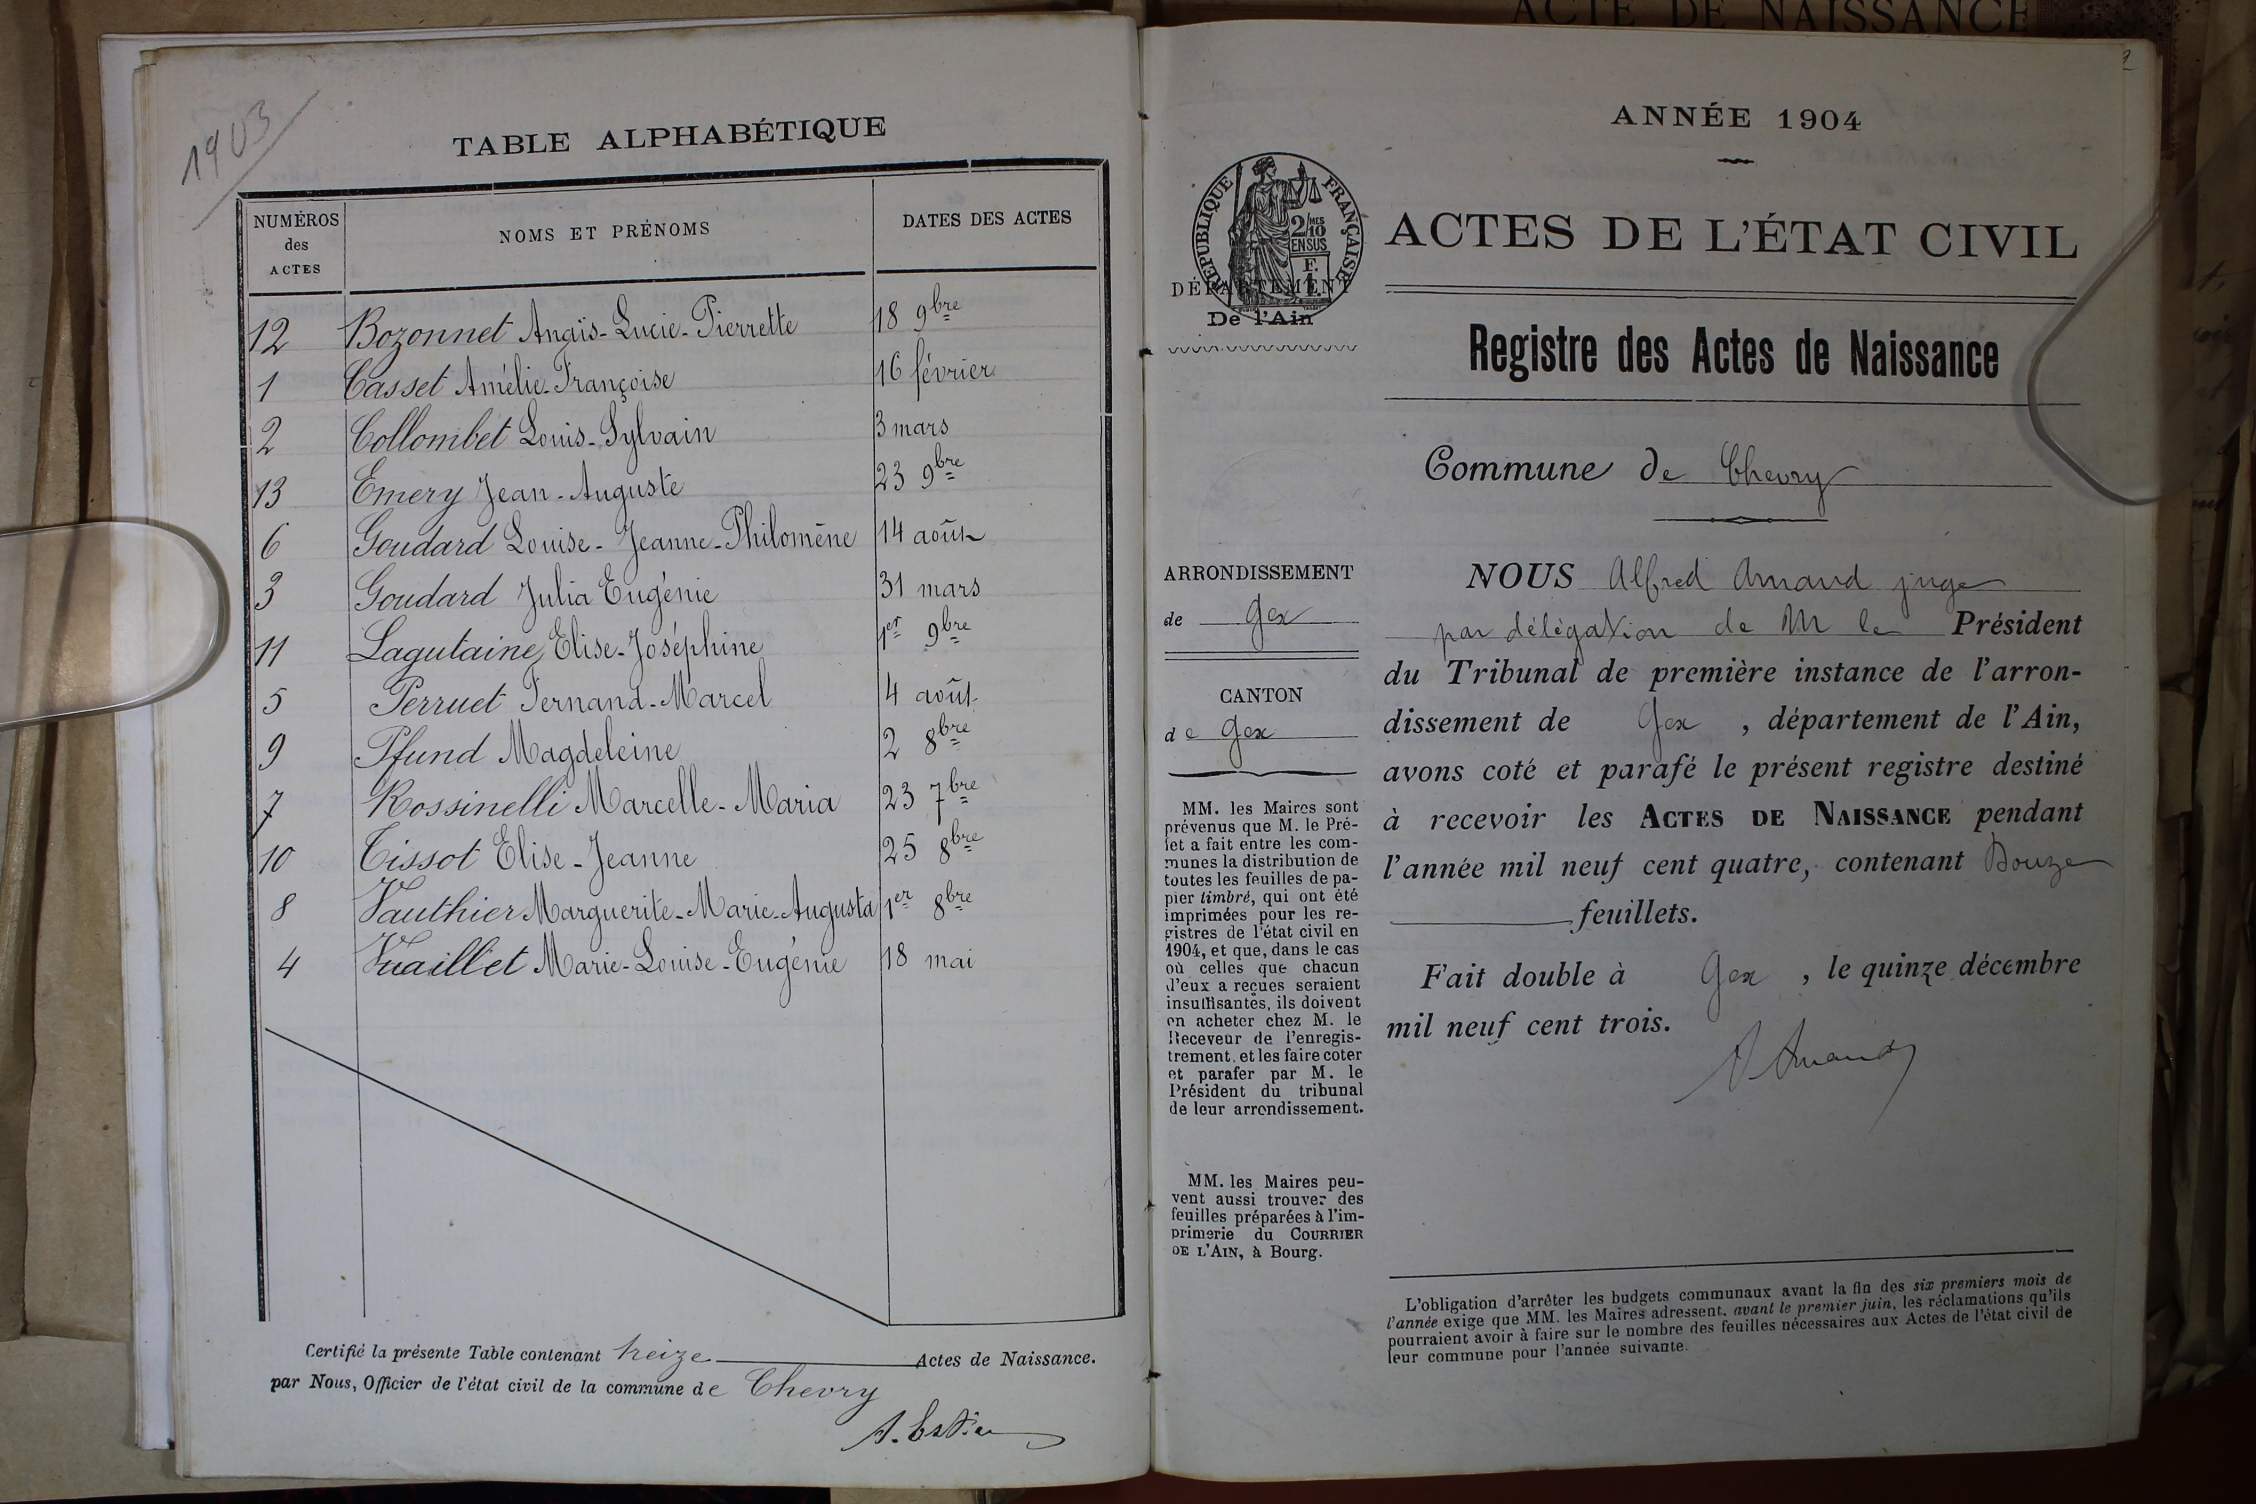 ACTE DE NAISSANCE
1903
TABLE ALPHABÉTIQUE
NUMÉROS des ACTES NOMS ET PRÉNOMS DATES DES ACTES
12 Bozonnet Anaïs-Lucie-Pierrette 18 9bre
1 Casset Amélie-Françoise 16 février
2 Collombet Louis-Sylvain 3 mars
13 Emery Jean-Auguste 23 9bre
6 Goudard Louise-Jeanne-Philomène 14 août
3 Goudard Julia Eugénie 31 mars
11 Lagutaine Elise-Joséphine 1er 9bre
5 Perruet Fernand-Marcel 4 août
9 Pfund Magdeleine 2 8bre
7 Rossinelli Marcelle-Maria 23 7bre
10 Tissot Elise-Jeanne 25 8bre
8 Vauthier Marguerite-Marie-Augusta 1er 8bre
4 Vuaillet Marie-Louise-Eugénie 18 mai
Certifié la présente Table contenant treize Actes de Naissance.
par Nous, Officier de l'état civil de la commune de Chevry
ANNÉE 1904
RÉPUBLIQUE FRANÇAISE
2/10 MES
EN SUS
F.
1
DÉPARTEMENT
De l'Ain
ACTES DE L'ÉTAT CIVIL
Registre des Actes de Naissance
Commune de Chevry
ARRONDISSEMENT
de Gex
CANTON
de Gex
MM. les Maires sont
prévenus que M. le Pré-
fet a fait entre les com-
munes la distribution de
toutes les feuilles de pa-
pier timbré, qui ont été
imprimées pour les re-
gistres de l'état civil en
1904, et que, dans le cas
où celles que chacun
d'eux a reçues seraient
insuffisantes, ils doivent
en acheter chez M. le
Receveur de l'enregis-
trement, et les faire coter
et parafer par M. le
Président du tribunal
de leur arrondissement.
MM. les Maires peu-
vent aussi trouver des
feuilles préparées à l'im-
primerie du COURRIER
DE L'AIN, à Bourg.
NOUS Alfred Arnaud juge
par délégation de M le Président
du Tribunal de première instance de l'arron-
dissement de Gex, département de l'Ain,
avons coté et parafé le présent registre destiné
à recevoir les ACTES DE NAISSANCE pendant
l'année mil neuf cent quatre, contenant Douze
feuillets.
Fait double à Gex, le quinze décembre
mil neuf cent trois.
A Arnaud
L'obligation d'arrêter les budgets communaux avant la fin des six premiers mois de
l'année exige que MM. les Maires adressent, avant le premier juin, les réclamations qu'ils
pourraient avoir à faire sur le nombre des feuilles nécessaires aux Actes de l'état civil de
leur commune pour l'année suivante.